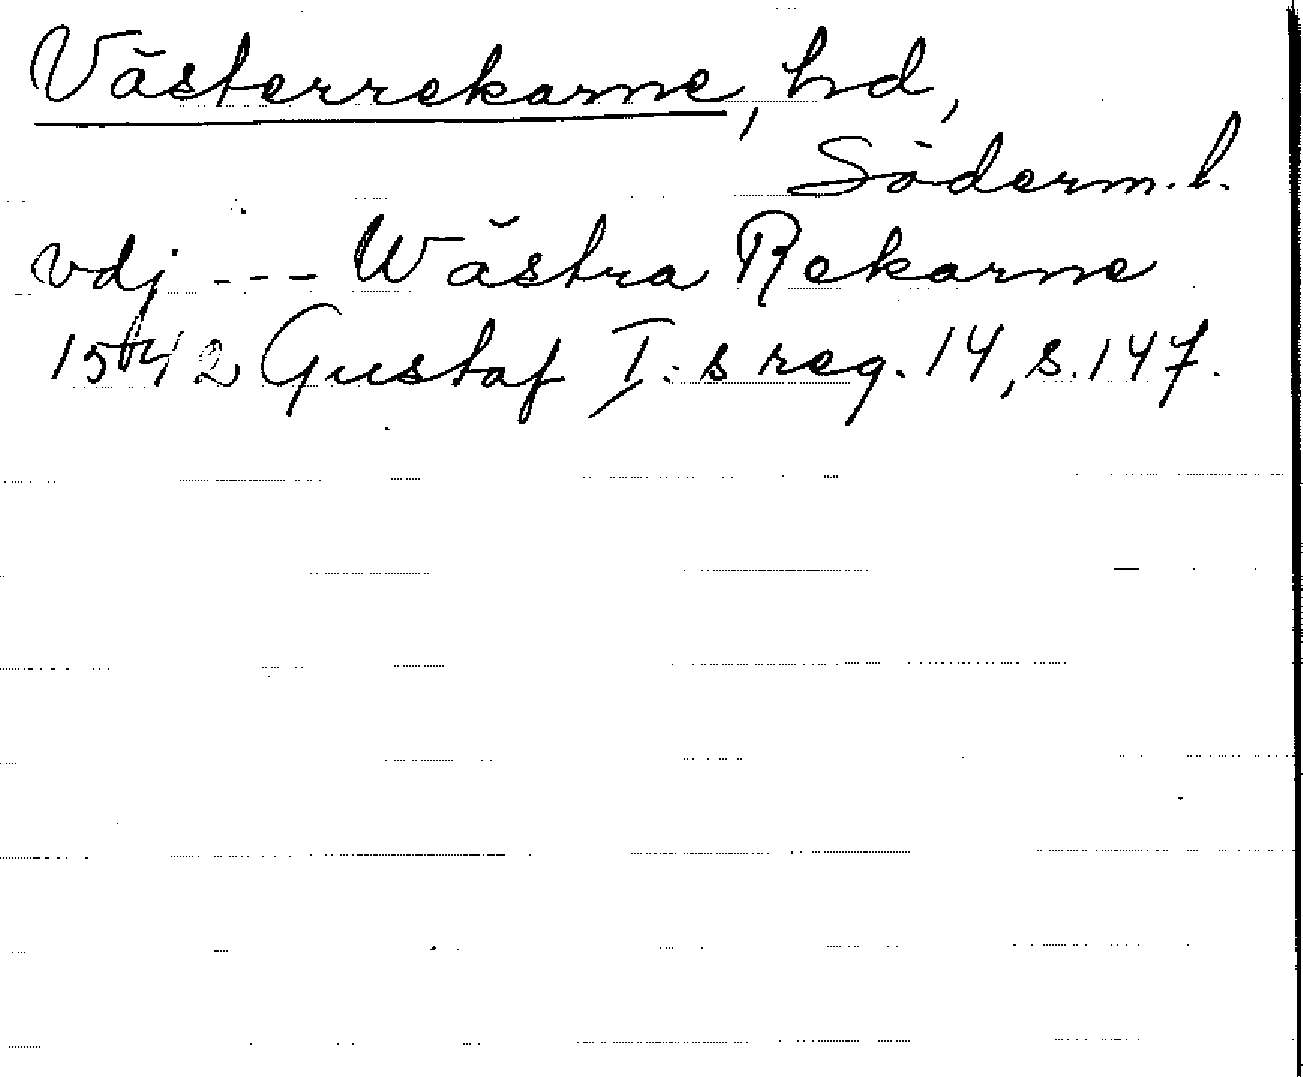 Västerrekarne, hd,
Söderm. l.
vdj --- Wästra Rekarne
1542 Gustaf I:s reg. 14, s. 147.